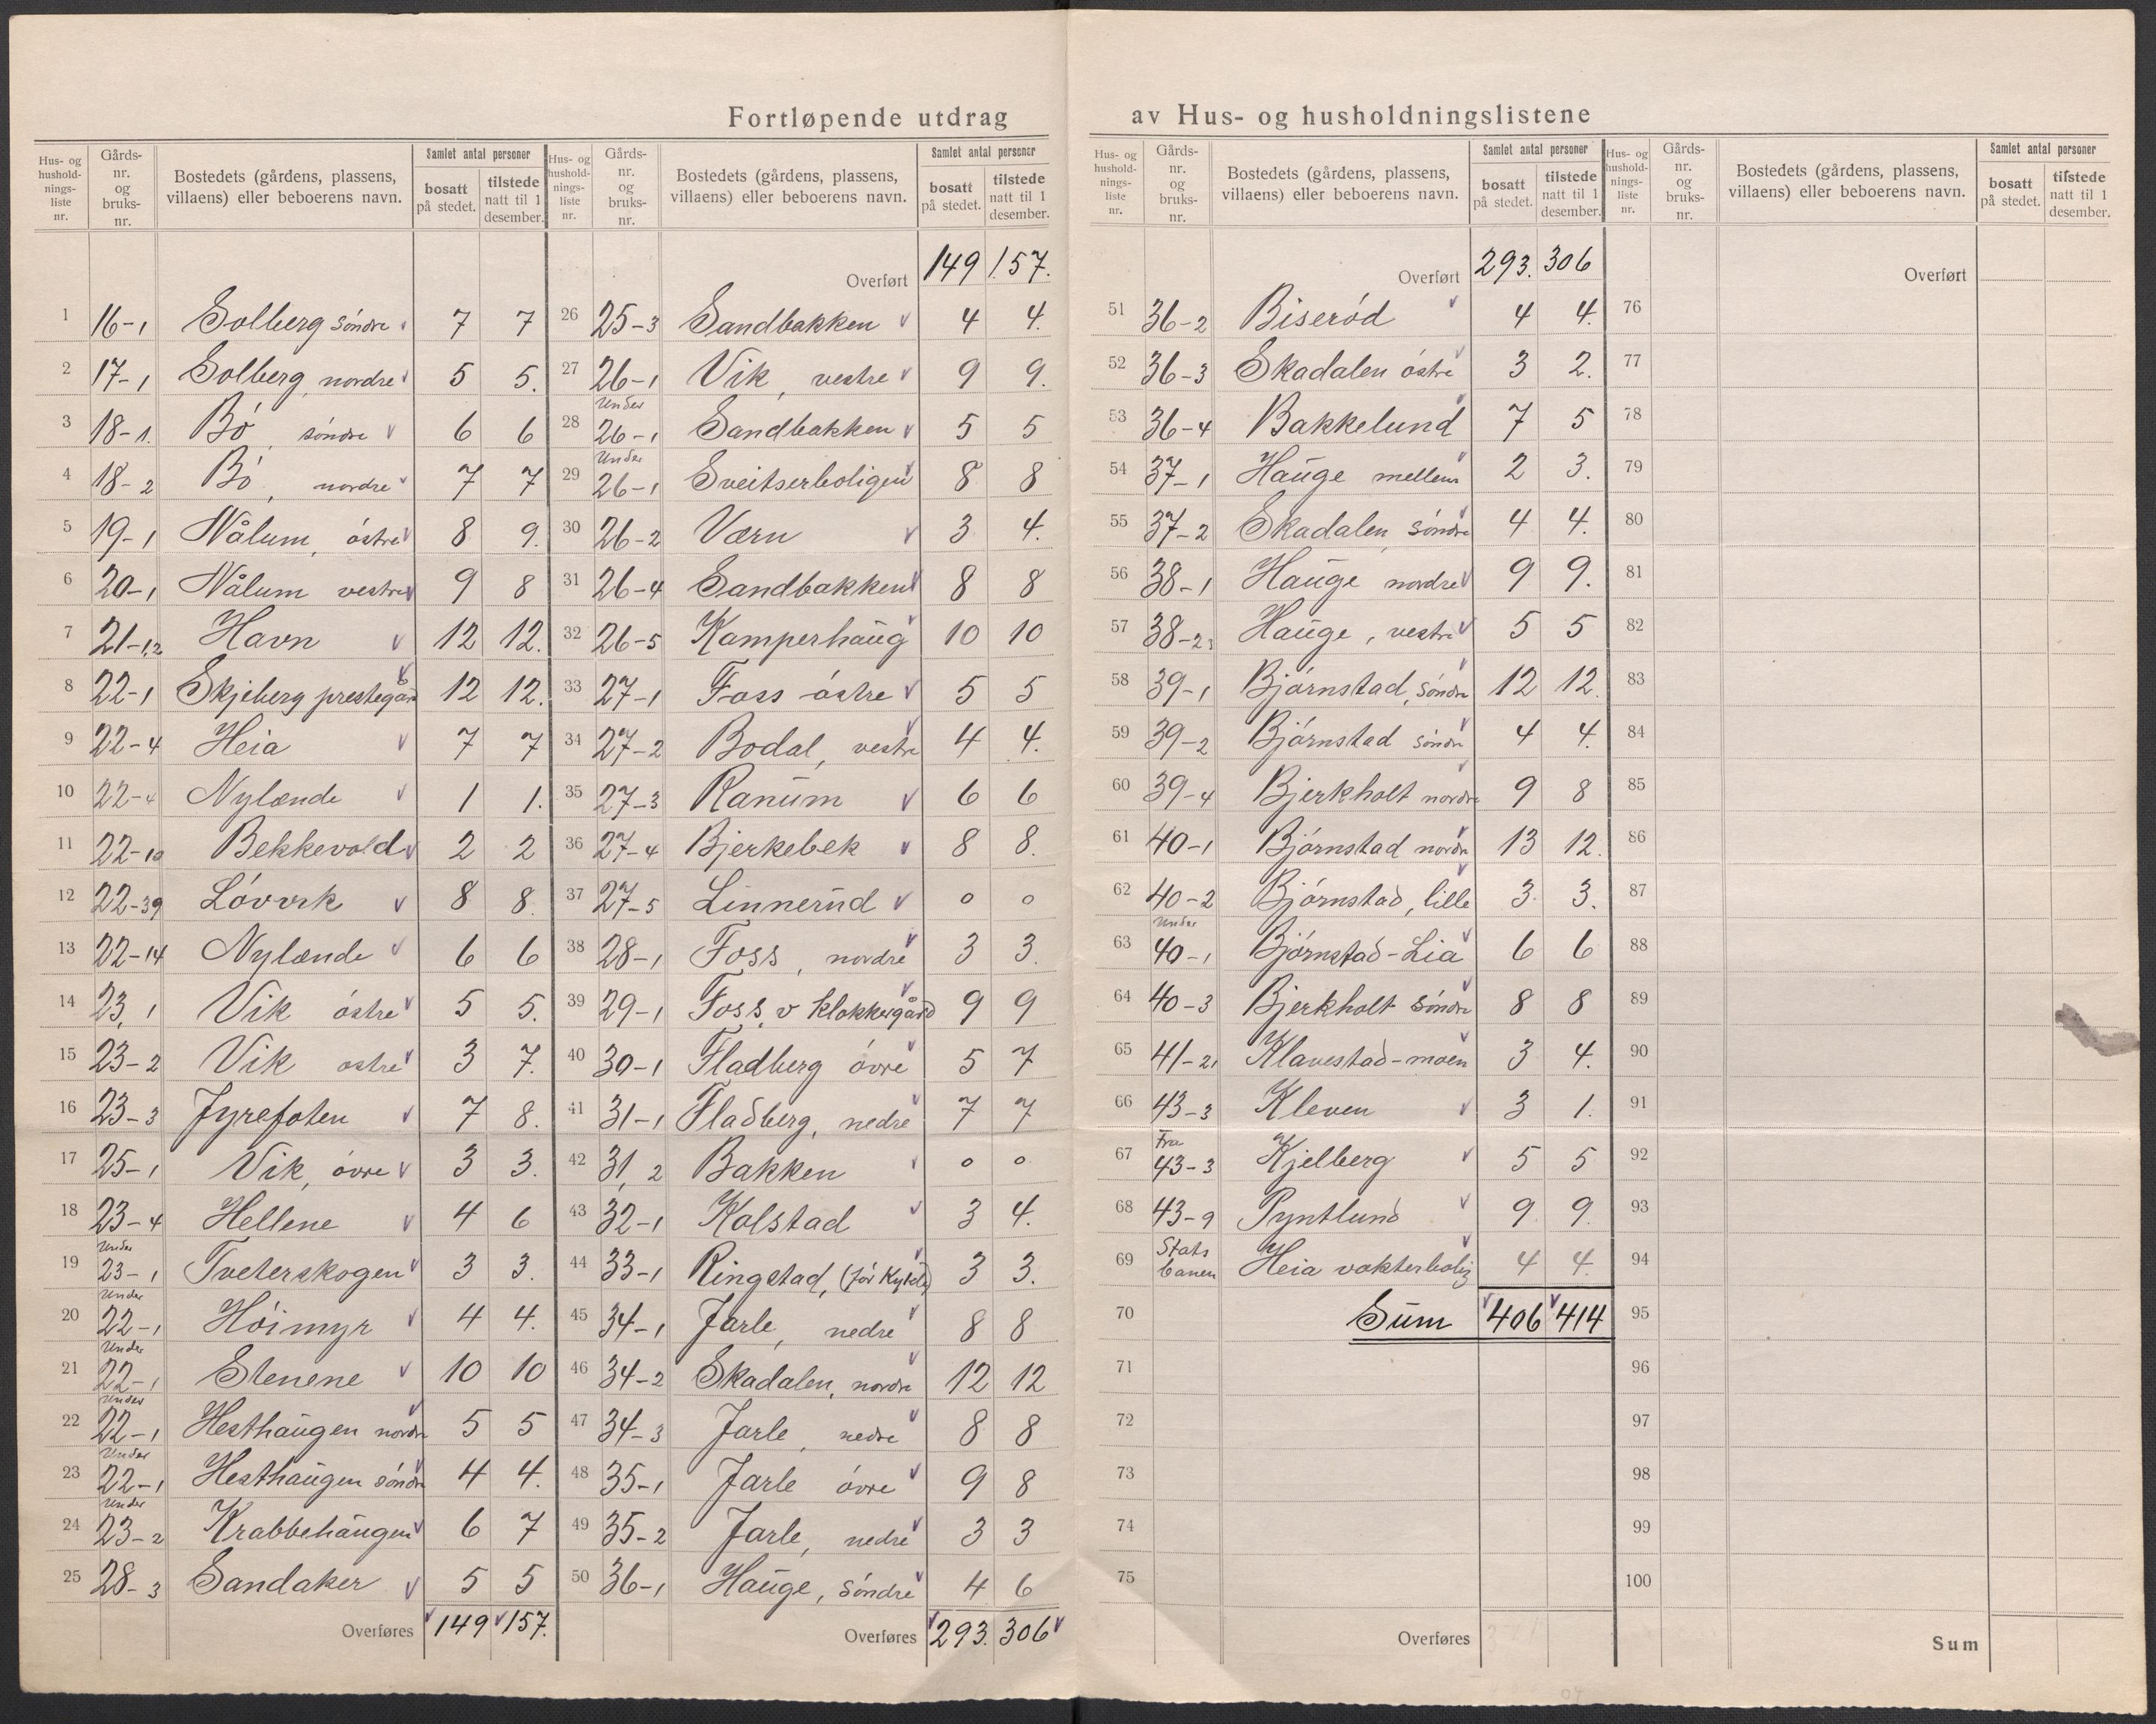 Fortløpende utdrag av Hus- og husholdningslistene
Hus- og hushold- nings- liste nr. | Gårds- nr. og bruks- nr. | Bostedets (gårdens, plassens, villaens) eller beboerens navn. | Samlet antal personer | bosatt på stedet. | tilstede natt til 1 desember.
1 16-1 Solberg søndre 7 7
2 17-1 Solberg nordre 5 5.
3 18-1. Bó, søndre 6 6
4 18-2 Bó, nordre 7 7
5 19-1 Nålum, óstre 8 9.
6 20-1 Nålum vestre 9 8
7 21-1,2 Havn 12 12.
8 22-1 Skjeberg prestegård 12 12.
9 22-4 Heia 7 7
10 22-4 Nylænde 1 1.
11 22-10 Bekkevold 2 2
12 22-39 Lóvvik 8 8.
13 22-14 Nylænde 6 6
14 23,1 Vik óstre 5 5.
15 23-2 Vik ostre 3 7.
16 23-3 Jyrefoten 7 8.
17 25-1 Vik, óvre 3 3.
18 23-4 Hellene 4 6
19 Under 23-1 Tveterskogen 3 3.
20 Under 22-1 Hóimyr 4 4.
21 Under 22-1 Stenene 10 10
22 Under 22-1 Hesthaugen nordre 5 5
23 Under 22-1 Hesthaugen søndre 4 4.
24 Under 23-2 Krabbehaugen 6 7
25 28-3 Sandaker 5 5
Overføres 149 157.
Hus- og hushold- nings- liste nr. | Gårds- nr. og bruks- nr. | Bostedets (gårdens, plassens, villaens) eller beboerens navn. | Samlet antal personer | bosatt på stedet. | tilstede natt til 1 desember.
Overført 149 157.
26 25-3 Sandbakken 4 4.
27 26-1 Vik, vestre 9 9.
28 Under 26-1 Sandbakken 5 5
29 Under 26-1 Sveitserboligen 8 8
30 26-2 Værn 3 4.
31 26-4 Sandbakken 8 8
32 26-5 Kamperhaug 10 10
33 27-1 Foss óstre 5 5
34 27-2 Bodal, vestre 4 4.
35 27-3 Ranum 6 6
36 27-4 Bjerkebek 8 8.
37 27-5 Linnerud 0 0
38 28-1 Foss, nordre 3 3.
39 29-1 Foss v klokkergård 9 9
40 30-1 Fladberg óvre 5 7
41 31-1 Fladberg, nedre 7 7
42 31,2 Bakken 0 0
43 32-1 Kolstad 3 4.
44 33-1 Ringstad, 3 3.
45 34-1 Jarle, nedre 8 8
46 34-2 Skadalen, nordre 12 12
47 34-3 Jarle, nedre 8 8
48 35-1 Jarle óvre 9 8
49 35-2 Jarle, nedre 3 3
50 36-1 Hauge, Sóndre 4 6
Overføres 293. 306
Hus- og hushold- nings- liste nr. | Gårds- nr. og bruks- nr. | Bostedets (gårdens, plassens, villaens) eller beboerens navn. | Samlet antal personer | bosatt på stedet. | tilstede natt til 1 desember.
Overført 293. 306
51 36-2 Biseród 4 4.
52 36-3 Skadalen óstre 3 2.
53 36-4 Bakkelund 7 5
54 37-1 Hauge mellem 2 3.
55 37-2 Skadalen, Sóndre 4 4.
56 38-1 Hauge nordre 9 9.
57 38-23 Hauge, vestre 5 5
58 39-1 Bjórnstad, Sóndre 12 12.
59 39-2 Bjórnstad sóndre 4 4.
60 39-4 Bjerkholt nordre 9 8
61 40-1 Bjórnstad nordre 13 12.
62 40-2 Bjórnstad, lille 3 3.
63 Under 40-1 Bjórnstad-Lia 6 6
64 40-3 Bjerkholt Sóndre 8 8
65 41-21 Klavestad-moen 3 4.
66 43-3 Kleven 3 1.
67 Fra 43-3 Kjelberg 5 5
68 43-9 Pyntlund 9 9.
69 Stats banen Heia vokterbolig 4 4.
70 Sum 406 414
71
72
73
74
75
Overføres
Hus- og hushold- nings- liste nr. | Gårds- nr. og bruks- nr. | Bostedets (gårdens, plassens, villaens) eller beboerens navn. | Samlet antal personer | bosatt på stedet. | tilstede natt til 1 desember.
Overført
76
77
78
79
80
81
82
83
84
85
86
87
88
89
90
91
92
93
94
95
96
97
98
99
100
Sum